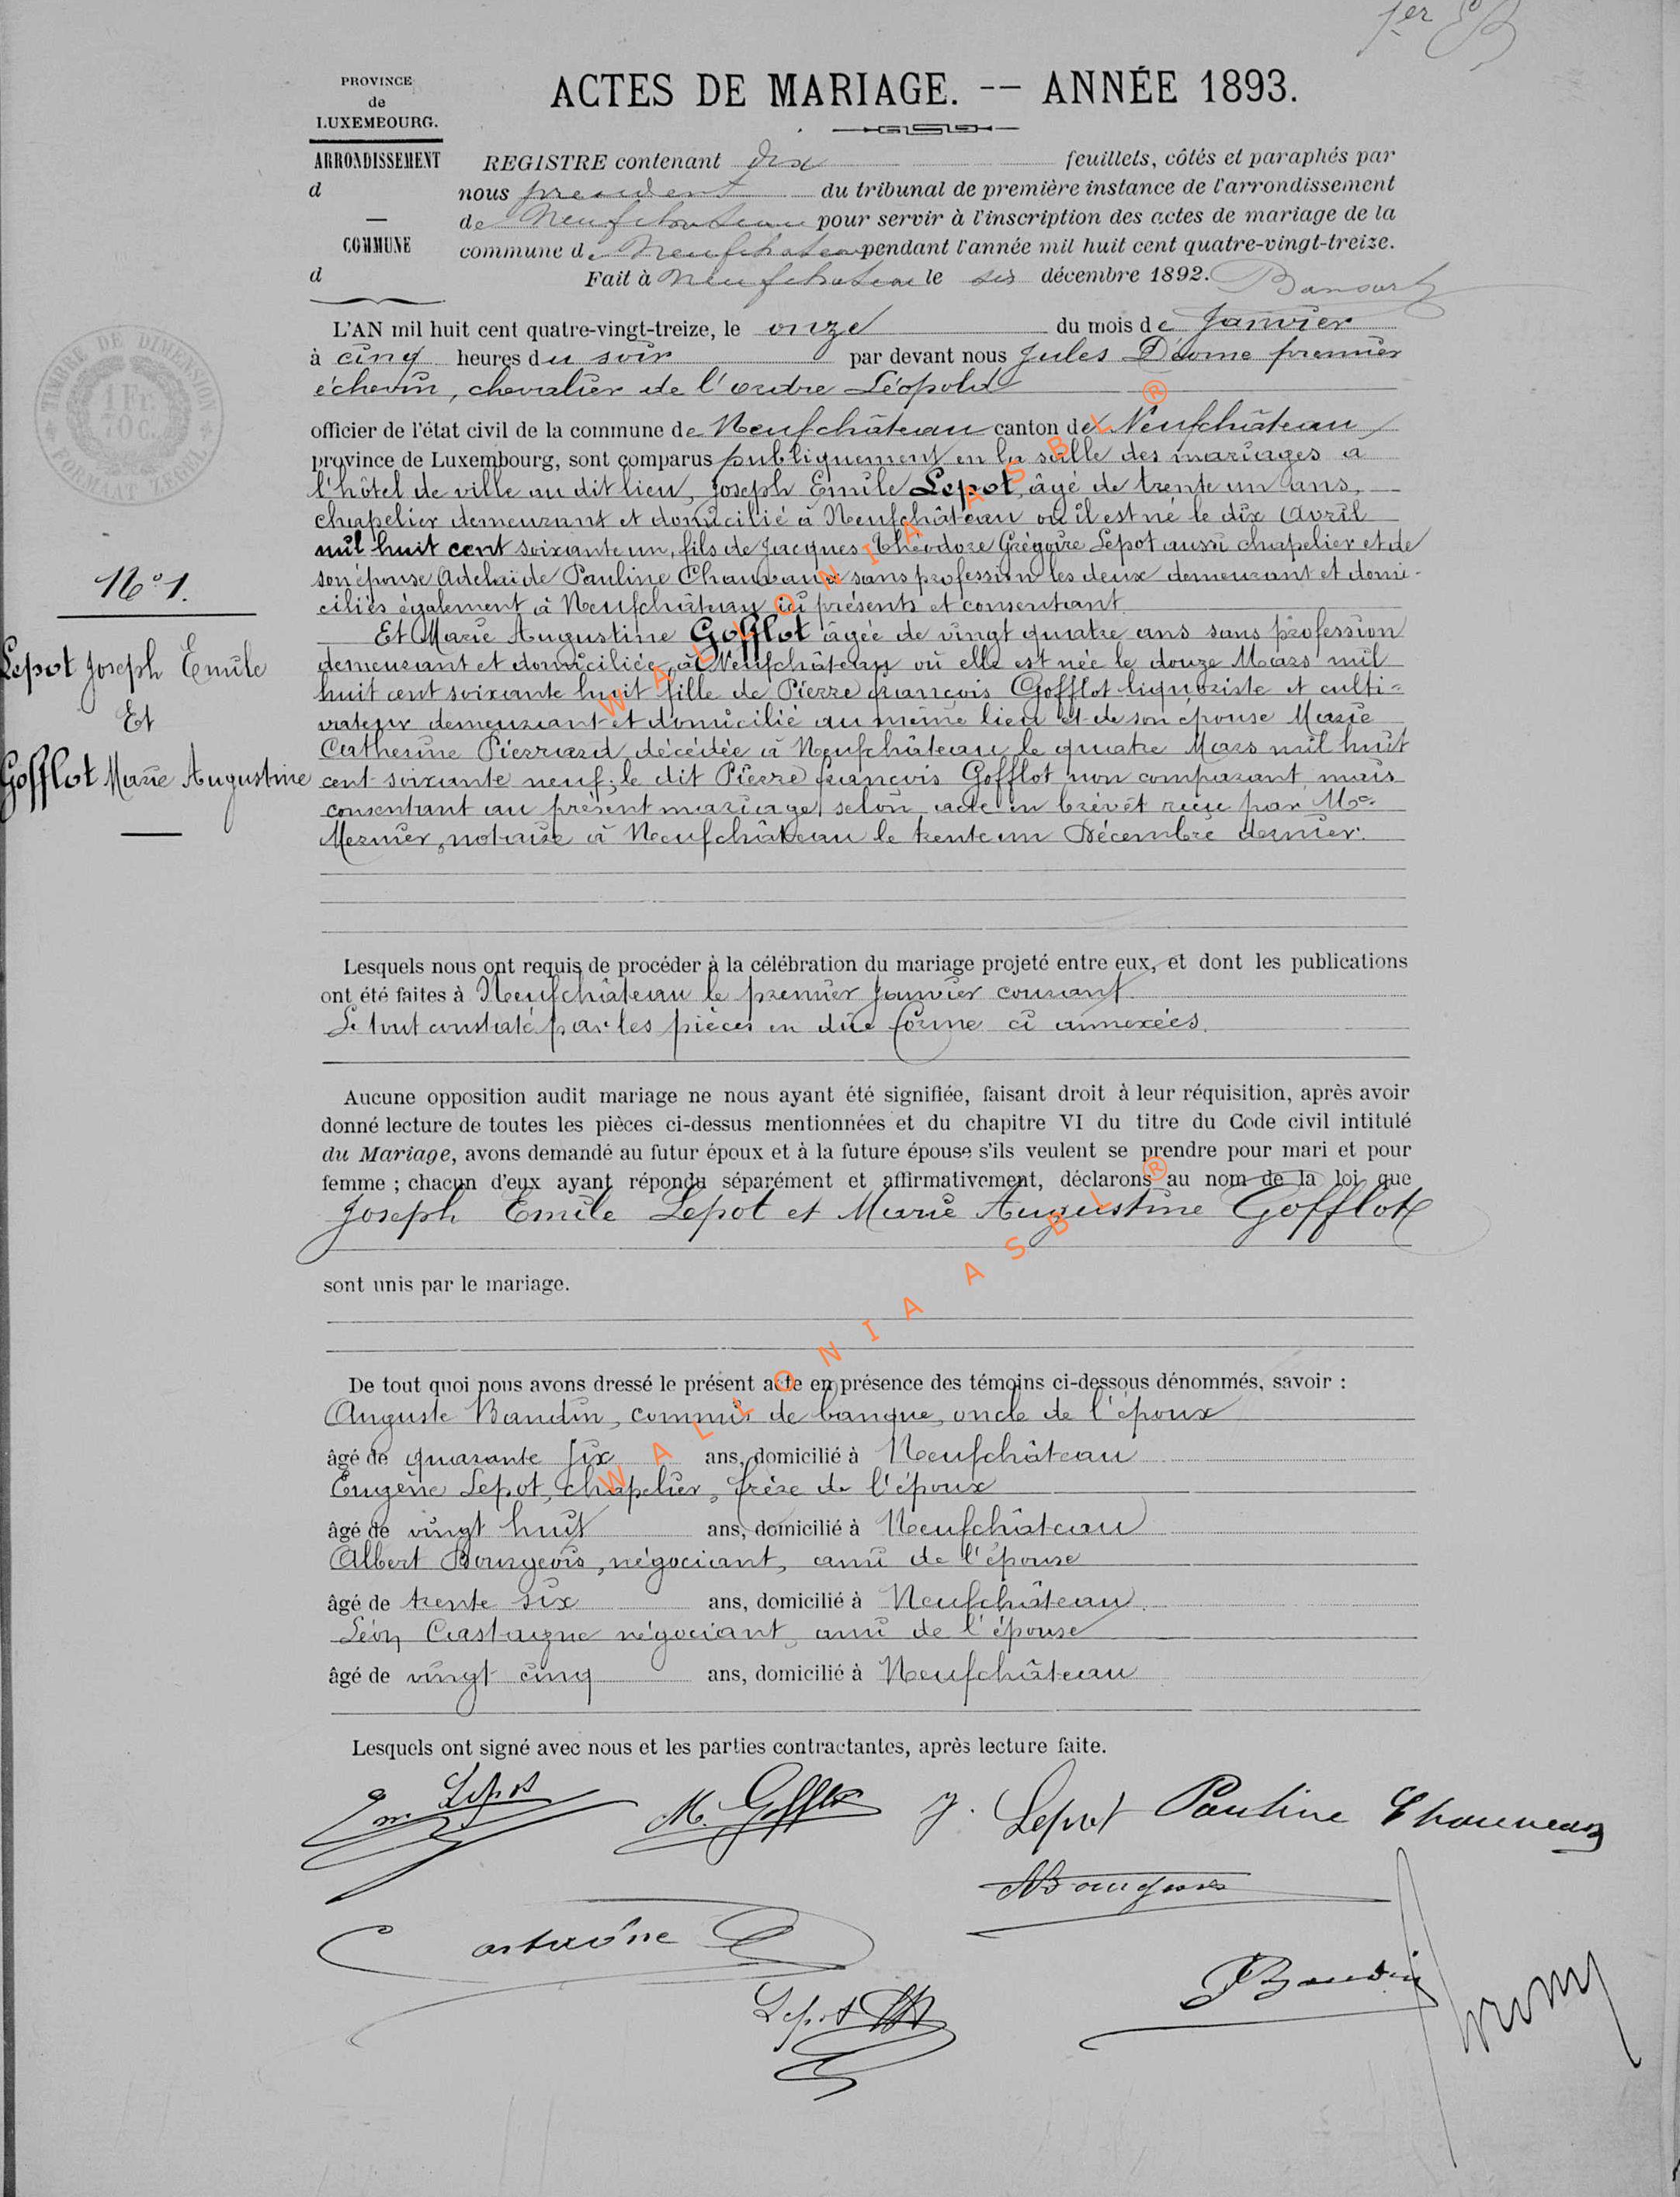 1er
PROVINCE
de
LUXEMBOURG.
ARRONDISSEMENT
d
COMMUNE
d
ACTES DE MARIAGE. -- ANNÉE 1893.
REGISTRE contenant dix feuillets, côtés et paraphés par
nous président du tribunal de première instance de l'arrondissement
de Neufchateau pour servir à l'inscription des actes de mariage de la
commune de Neufchateau pendant l'année mil huit cent quatre-vingt-treize.
Fait à Neufchateau le décembre 1892.
TIMBRE DE DIMENSION
1 Fr.
70 C.
FORMAAT ZEGEL
L'AN mil huit cent quatre-vingt-treize, le onze du mois de Janvier
à cinq heures du soir par devant nous Jules premier
échevin, chevalier de l'ordre Léopold
officier de l'état civil de la commune de Neufchâteau canton de Neufchâteau
province de Luxembourg, sont comparus publiquement en la salle des mariages a
l'hôtel de ville au dit lieu, Joseph Emile Lepot, âgé de trente un ans,
chapelier demeurant et domicilié à Neufchâteau où il est né le dix Avril
mil huit cent soixante un, fils de Jacques Théodore Grégoire Lepot aussi chapelier et de
son épouse Adelaïde Pauline Chauvaux sans profession les deux demeurant et domi-
ciliés également à Neufchâteau ici présents et consentant.
Et Marie Augustine Gofflot âgée de vingt quatre ans sans profession
demeurant et domiciliée à Neufchâteau où elle est née le douze Mars mil
huit cent soixante huit fille de Pierre François Gofflot liquoriste et culti-
vateur demeurant et domicilié au même lieu et de son épouse Marie
Catherine Pierrard, décédée à Neufchâteau le quatre Mars mil huit
cent soixante neuf; le dit Pierre François Gofflot non comparant mais
consentant au présent mariage selon acte en brévèt reçu par Me
Mernier, notaire à Neufchâteau le trente un Décembre dernier.
No 1.
Lepot Joseph Emile
Et
Gofflot Marie Augustine
Lesquels nous ont requis de procéder à la célébration du mariage projeté entre eux, et dont les publications
ont été faites à Neufchâteau le premier Janvier courant.
Le tout constaté par les pièces en due forme ci annexées.
Aucune opposition audit mariage ne nous ayant été signifiée, faisant droit à leur réquisition, après avoir
donné lecture de toutes les pièces ci-dessus mentionnées et du chapitre VI du titre du Code civil intitulé
du Mariage, avons demandé au futur époux et à la future épouse s'ils veulent se prendre pour mari et pour
femme ; chacun d'eux ayant répondu séparément et affirmativement, déclarons au nom de la loi que
Joseph Emile Lepot et Marie Augustine Gofflot
sont unis par le mariage.
De tout quoi nous avons dressé le présent acte en présence des témoins ci-dessous dénommés, savoir :
Auguste Baudin, commis de banque, oncle de l'époux
âgé de quarante six ans, domicilié à Neufchâteau
Eugène Lepot, chapelier, frère de l'époux
âgé de vingt huit ans, domicilié à Neufchâteau
Albert Bourgeois, négociant, ami de l'épouse
âgé de trente six ans, domicilié à Neufchâteau
Léon Castaigne négociant, ami de l'épouse
âgé de vingt cinq ans, domicilié à Neufchâteau
Lesquels ont signé avec nous et les parties contractantes, après lecture faite.
Em Lepot M. Gofflot J. Lepot Pauline Chauveaux
Bourgeois
Castaigne
Baudin
Lepot
WALLONIA ASBL ®
WALLONIA ASBL ®